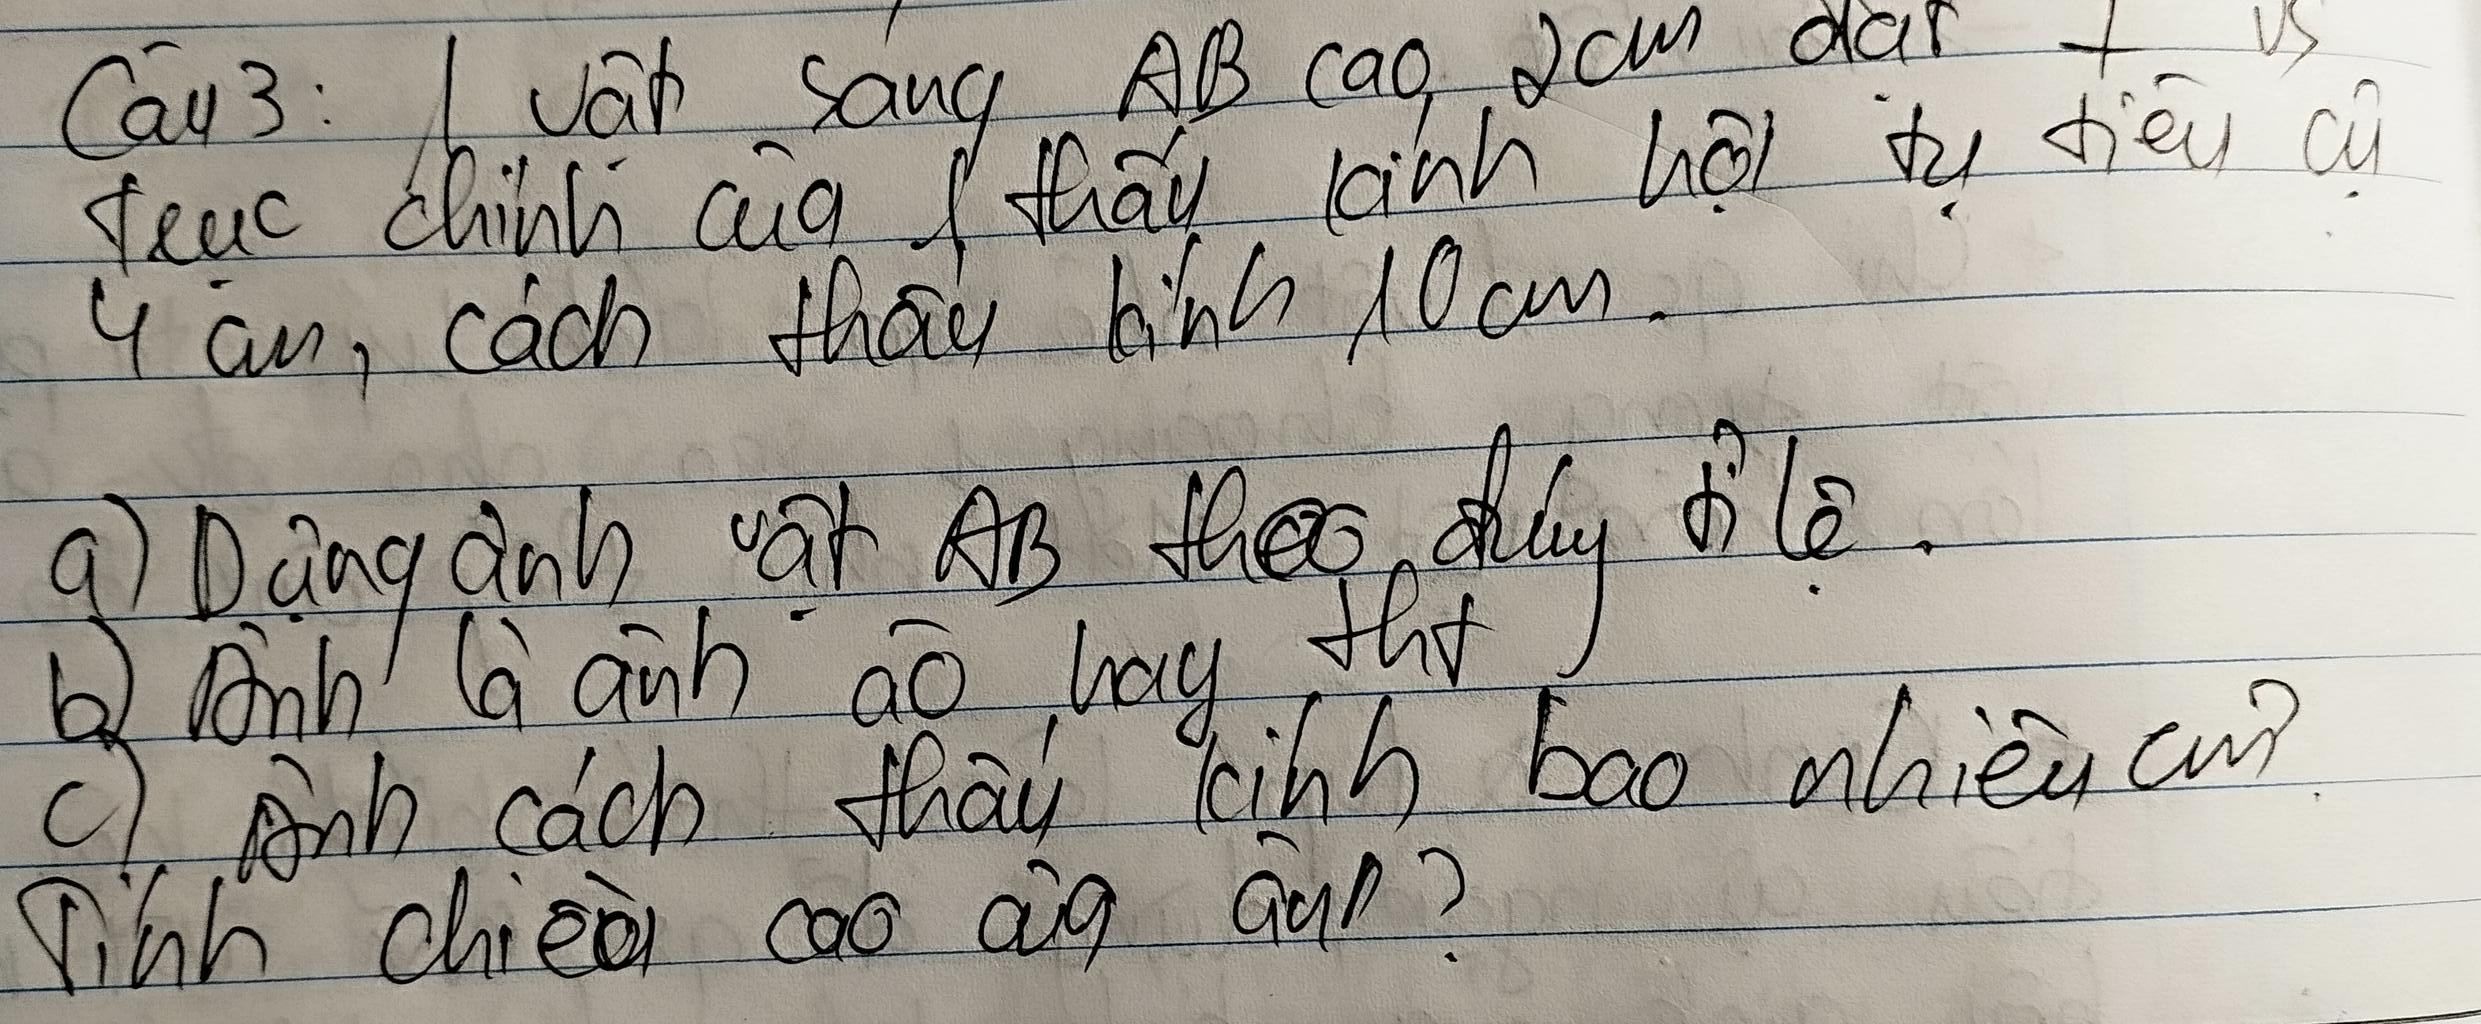 Câu 3: 1 vật sáng AB cao 2cm đặt ⊥ vs
trục chính của 1 thấu kính hội tụ tiêu cự
4 cm, cách thấu kính 10 cm.
a) Dựng ảnh vật AB theo đúng tỉ lệ.
b) Ảnh là ảnh ảo hay tht
c) Ảnh cách thấu kính bao nhiêu cm?
Tính chiều cao của ảnh?